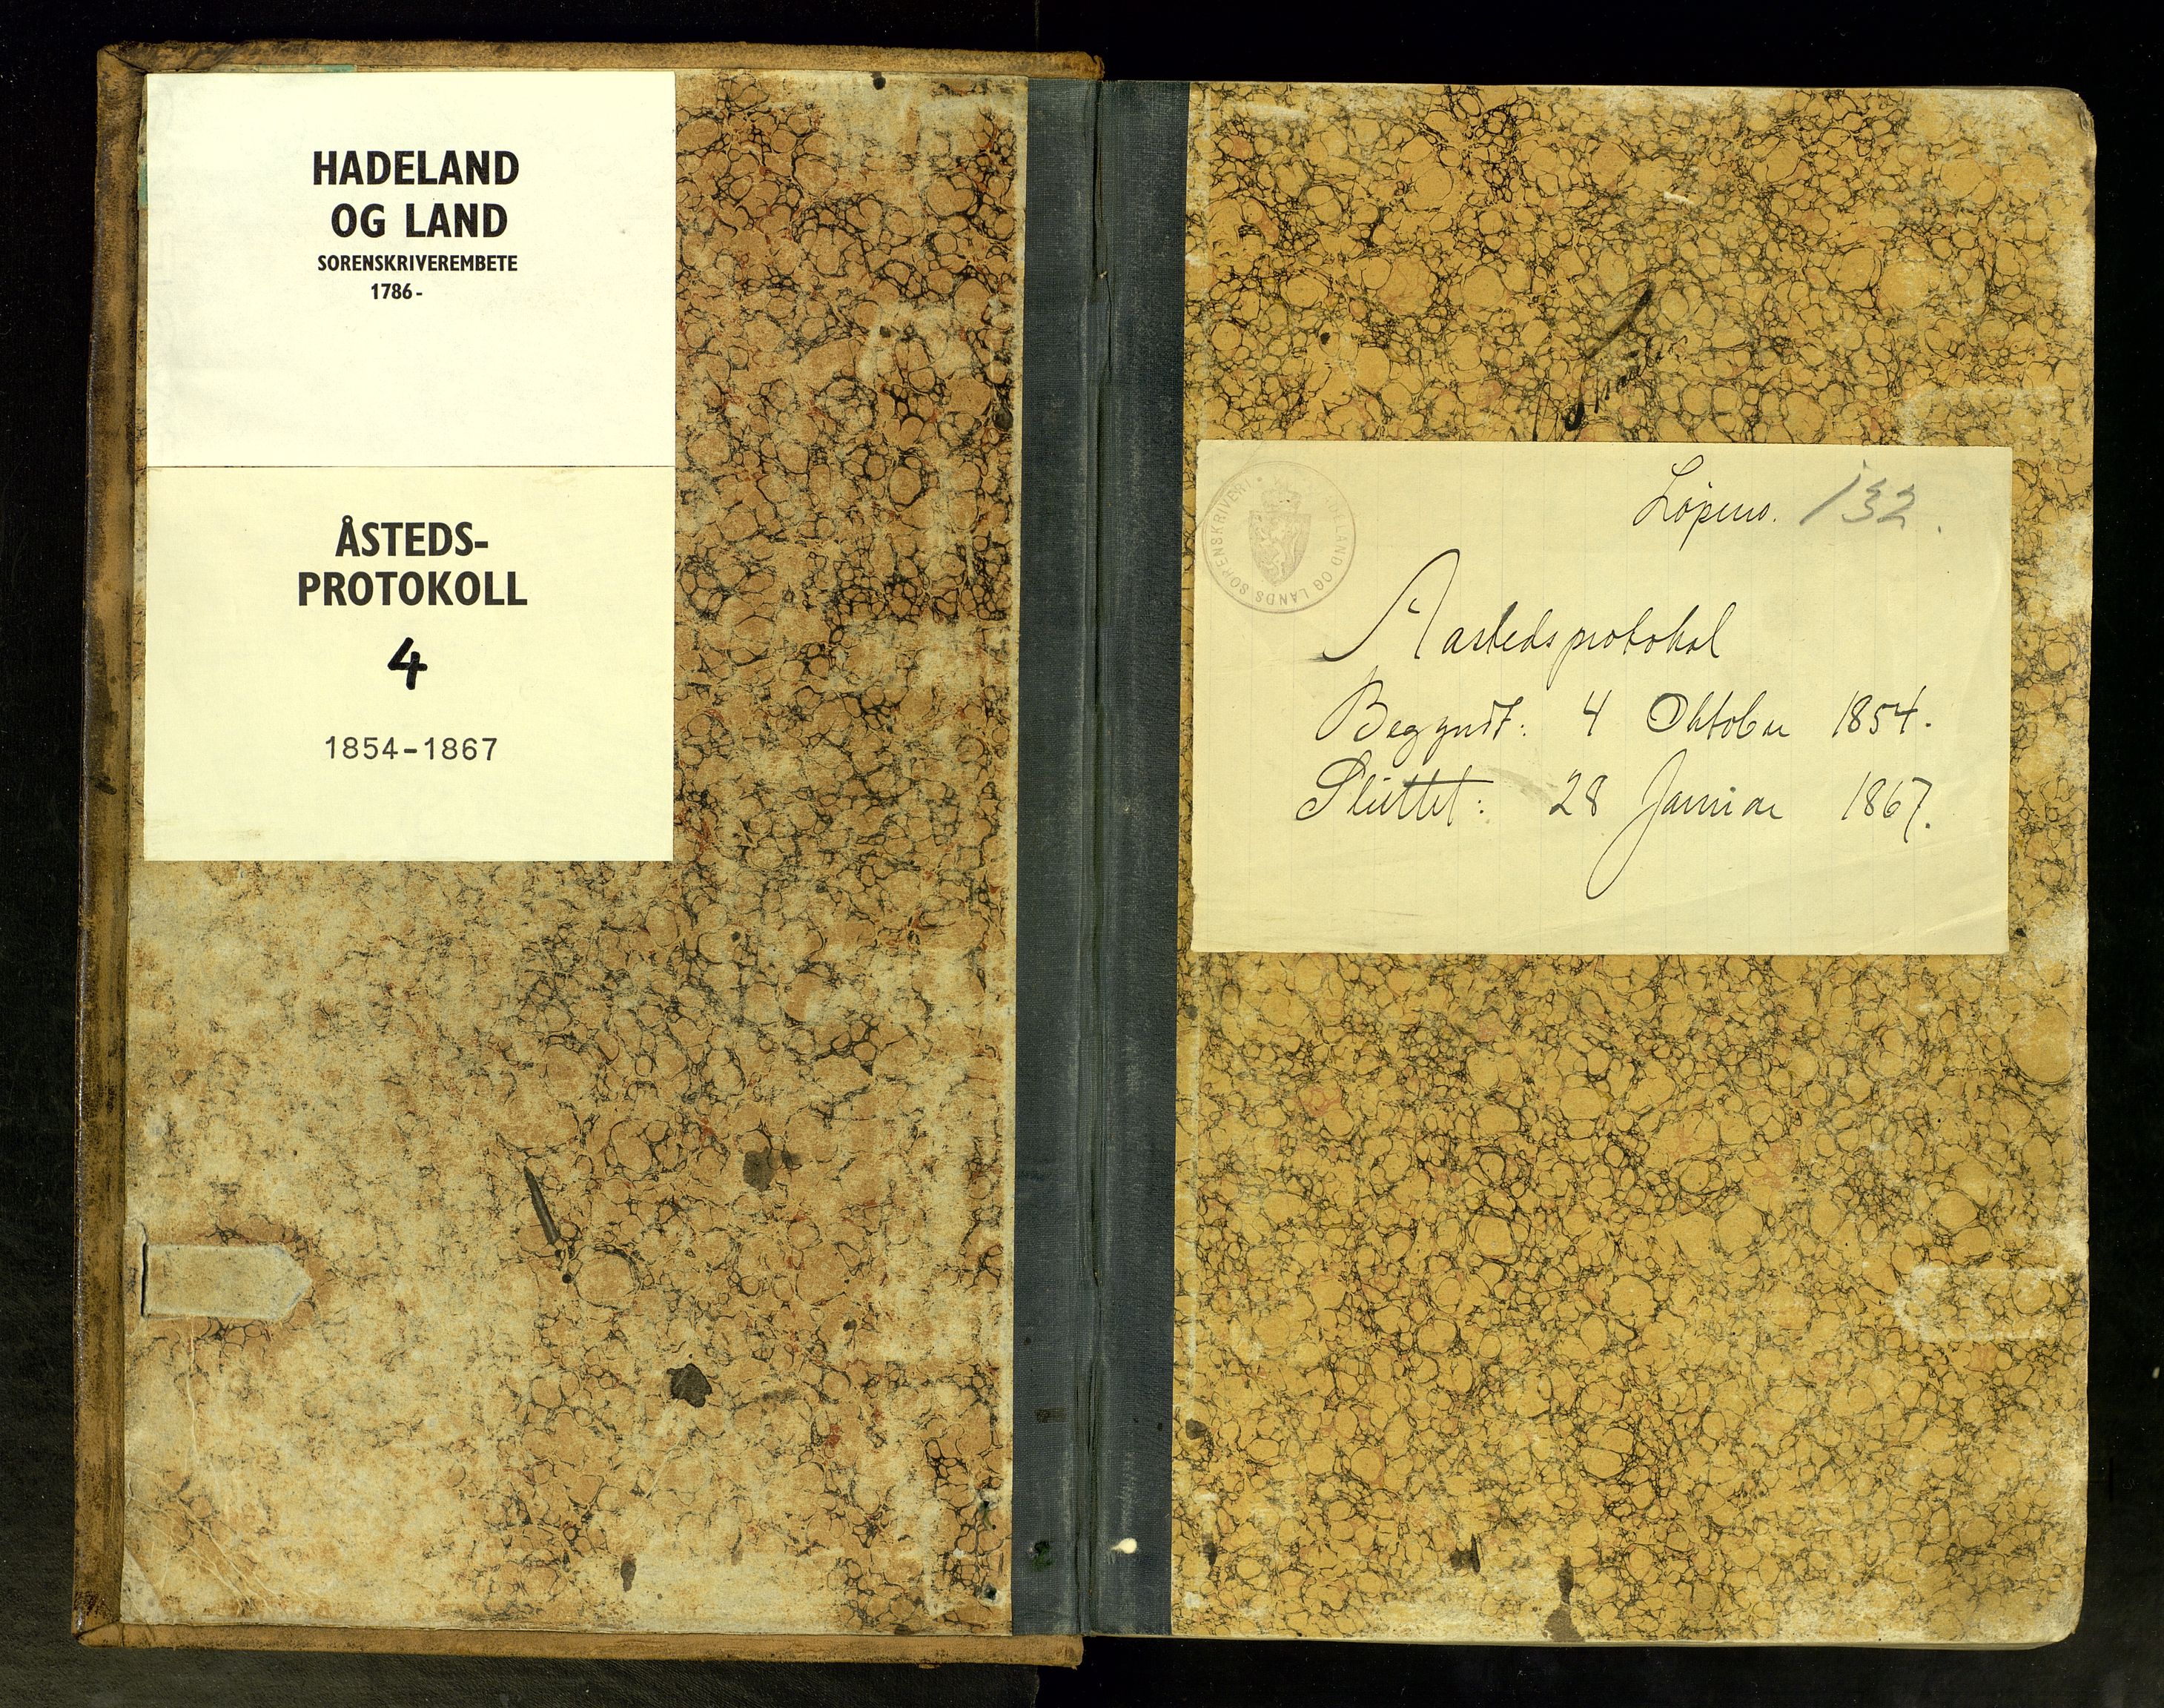 HADELAND
OG LAND
SORENSKRIVEREMBETE
1786-
ÅSTEDS-
PROTOKOLL
4
1854-1867
Løpeno. 132.
LAND OG LANDS SORENSKRIVERI
Aastedsprotokol
Begyndt: 4 Oktober 1854.
Sluttet: 28 Januar 1867.